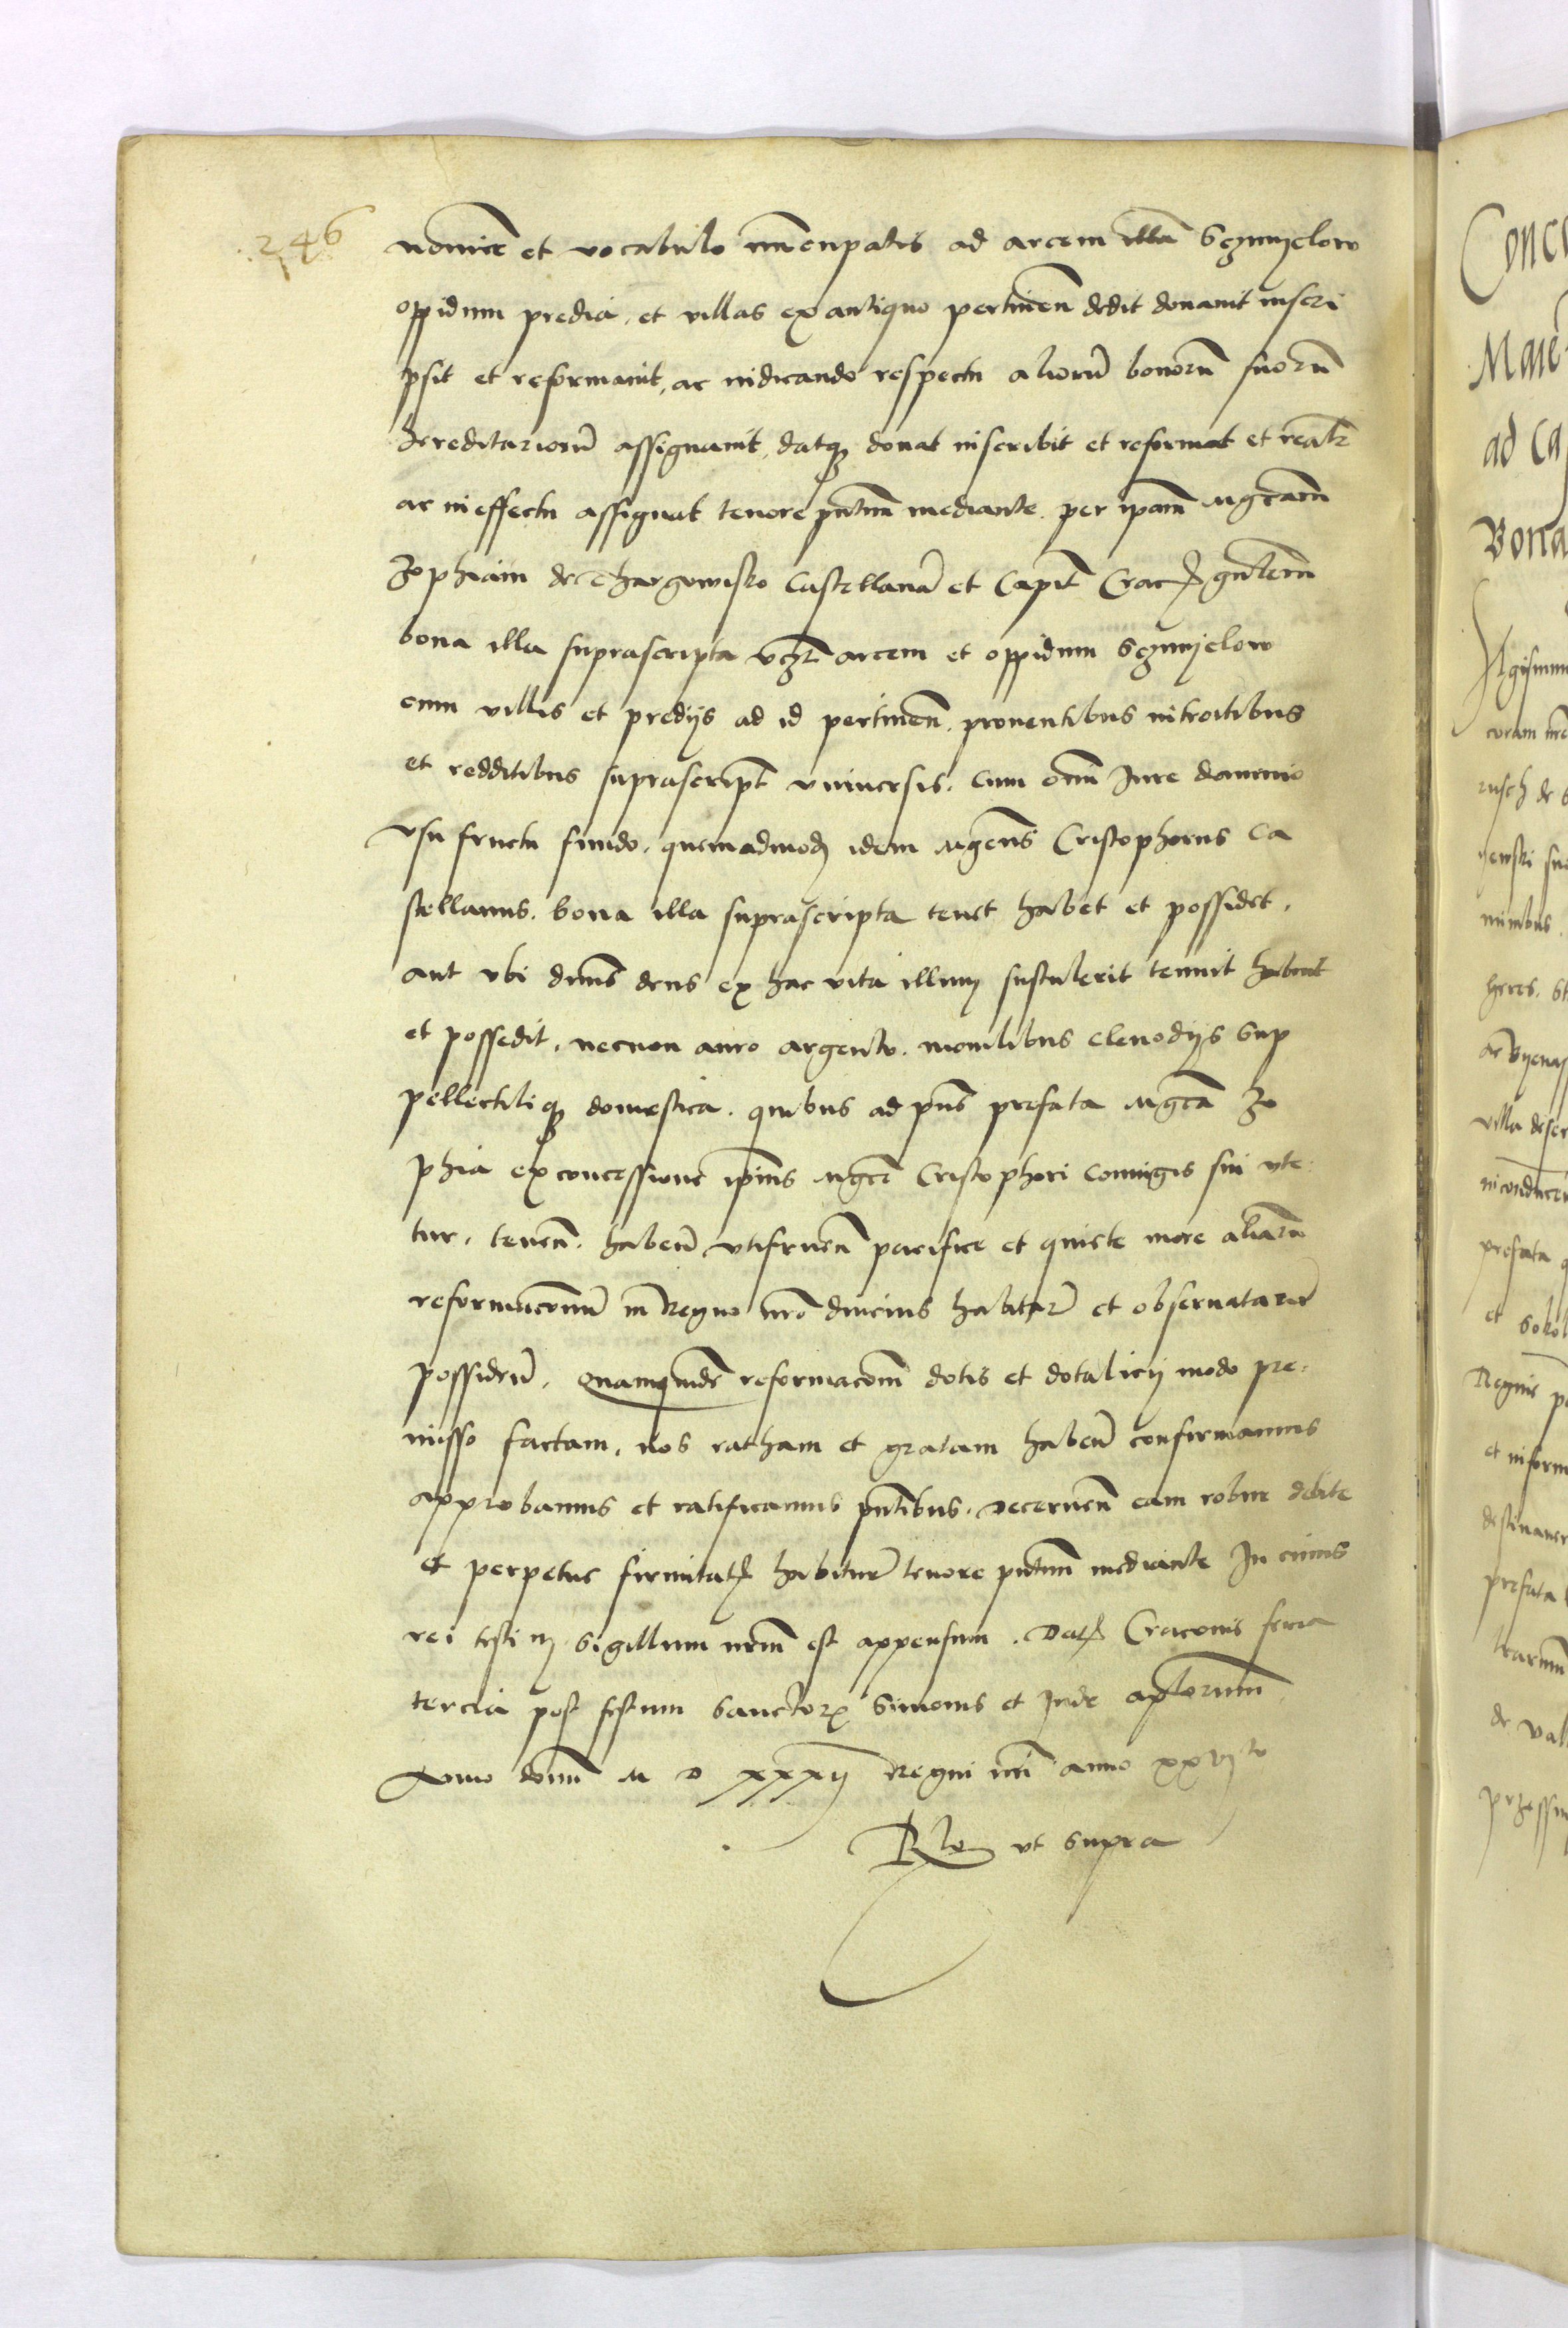 246
nomine et vocabulo nuncupatis ad arcem illā Schmyelow
oppidum predia, et villas ex antiquo pertineñ dedit donavit inscri
psit et reformavit, ac indicando respectu aliorū bonorū suorū
hereditariorū assignavit, datq3 donat inscribit et reformat et realr̄
ac in effectu assignat tenore pn̄tium mediante. per ip̄am Mgcām
Zophiam de Thargowisko Castellanā et Capit̄ Crac̄ gn̄lem
bona illa suprascripta vcz̄ arcem et oppidum Schmyelow
cum villis et predijs ad id pertineñ. proventibus introitibus
et redditibus suprascript̄ vniversis. cum om̄i Jure dominio
vsufructu fundo. quemadmod3 idem Mgcūs Cristophorus Ca
stellanus. bona illa suprascripta tenet habet et possidet,
aut vbi dn̄us deus ex hac vita illum sustulerit tenuit habuit
et possedit, necnon auro argento. monilibus clenodijs Sup
pellectiliq3 domestica. quibus ad pn̄s prefata Mgcā Zo
phia ex concessione ip̄ius Mgcī Cristophori coniugis sui vte-
tur. teneñ. habeñ vtifrueñ pacifice et quiete more aliarū
reformaconū in Regno nr̄o diucius habitarū et observatarū
possideñ. Quamquidē reformacōm dotis et dotalicij modo pre-
misso factam, nos ratham et gratam habeñ confirmamus
approbamus et ratificamus pn̄tibus. Decerneñ eam robur debite
et perpetue firmitat̄ habiturā tenore pn̄tium mediante In cuius
rei testim Sigillum nr̄m est appensum. Dat̄ Cracovie feria
tercia post festum Sanctor̄ Simonis et Jude aplorum
Anno domī M D xxxij Regni nr̄i anno xxvj to
Rlo vt supra
Conc
ad Ca
Bona
coram nr̄
prefata
et Sokol
et inform
prefata
de val